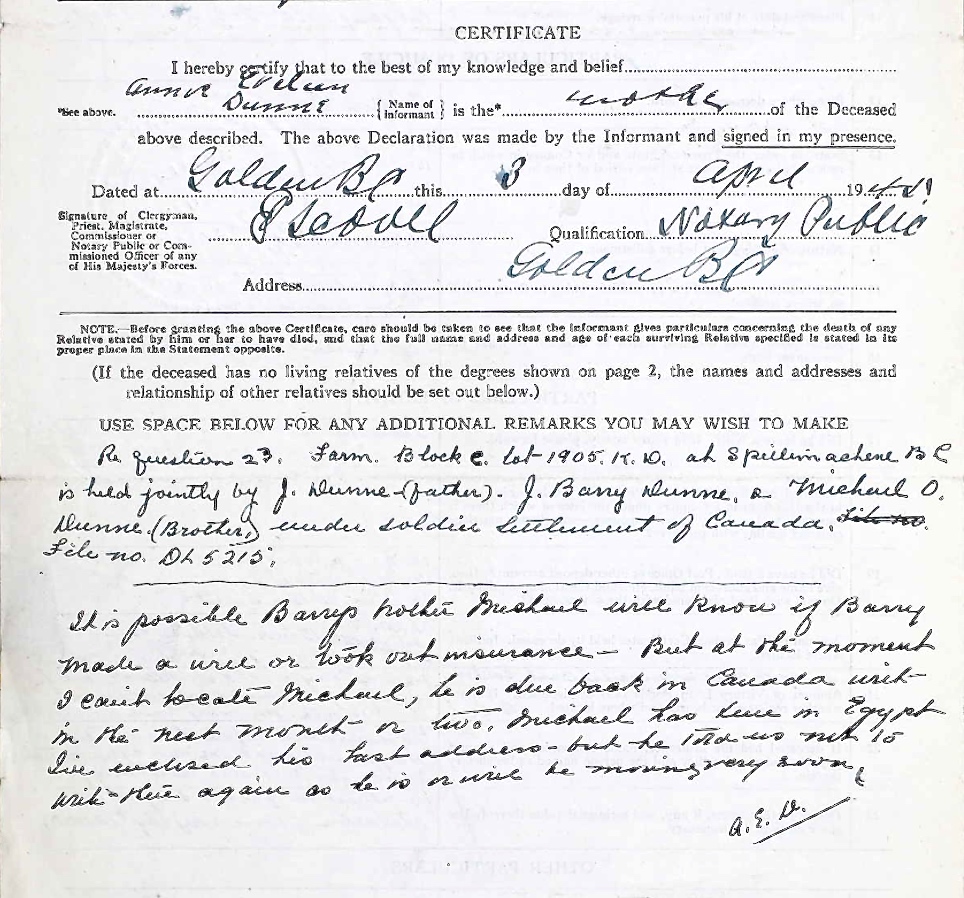 CERTIFICATE
I hereby certify that to the best of my knowledge and belief
Annie Eileen
*See above. Dunne {Name of Informant} is the* mother of the Deceased
above described. The above Declaration was made by the Informant and signed in my presence.
Dated at Golden BC this 3 day of April 194
Signature of Clergyman,
Priest, Magistrate,
Commissioner or
Notary Public or Com-
missioned Officer of any
of His Majesty's Forces.
Qualification Notary Public
Address Golden BC
NOTE.—Before granting the above Certificate, care should be taken to see that the informant gives particulars concerning the death of any
Relative stated by him or her to have died, and that the full name and address and age of each surviving Relative specified is stated in its
proper place in the Statement opposite.
(If the deceased has no living relatives of the degrees shown on page 2, the names and addresses and
relationship of other relatives should be set out below.)
USE SPACE BELOW FOR ANY ADDITIONAL REMARKS YOU MAY WISH TO MAKE
Re question 23. Farm. Block C. lot 1905. K.D. at Spillimachene BC
is held jointly by J. Dunne (father). J. Barry Dunne, & Michael O.
Dunne. (Brother,) under Soldier Settlement of Canada. File no.
File no. DL 5215.
It is possible Barrys brother Michael will know if Barry
made a will or took out insurance — But at the moment
I can't locate Michael, he is due back in Canada with-
in the next month or two. Michael has been in Egypt
I've enclosed his last address - but he told us not to
write there again as he is or will be moving very soon.
A. E. D.